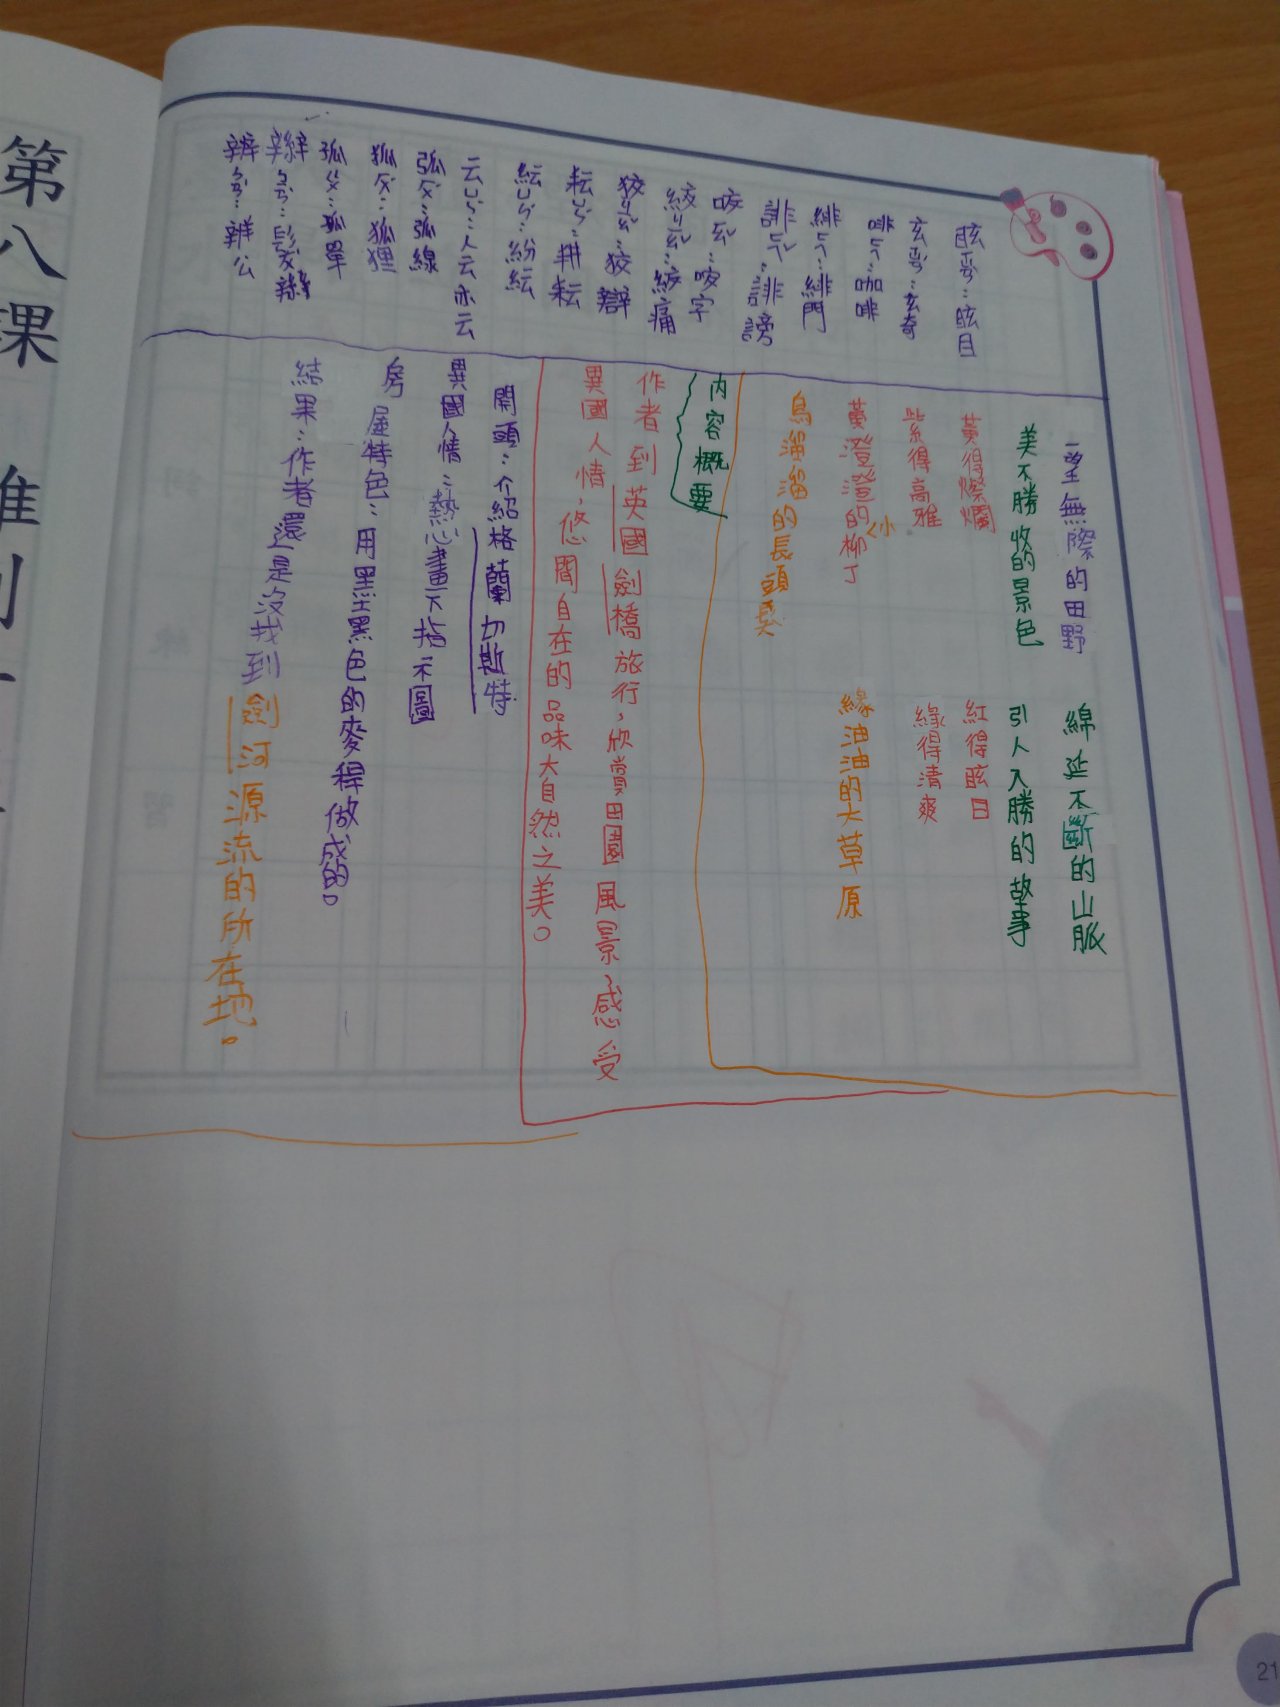 眩ㄒㄩㄢˋ：眩目
玄ㄒㄩㄢˊ：玄奇
啡ㄈㄟ：咖啡
緋ㄈㄟ：緋門
誹ㄈㄟˇ：誹謗
咬ㄧㄠˇ：咬字
絞ㄐㄧㄠˇ：絞痛
狡ㄐㄧㄠˇ：狡辯
耘ㄩㄣˊ：耕耘
紜ㄩㄣˊ：紛紜
云ㄩㄣˊ：人云亦云
弧ㄏㄨˊ：弧線
狐ㄏㄨˊ：狐狸
孤ㄍㄨ：孤單
辮ㄅㄧㄢˋ：髮辮
辨ㄅㄢˋ：辨公
一望無際的田野
綿延不斷的山脈
美不勝收的景色
引人入勝的故事
黃得燦爛
紅得眩目
紫得高雅
綠得清爽
黃澄澄的小柳丁
綠油油的大草原
烏溜溜的長頭髮
內容概要
作者到英國劍橋旅行，欣賞田園風景、感受
異國人情，悠閒自在的品味大自然之美。
開頭：介紹格蘭切斯特
異國人情：熱心畫下指示圖
房屋特色：用黑黑色的麥稈做成的。
結果：作者還是沒找到劍河源流的所在地。
第八課
21